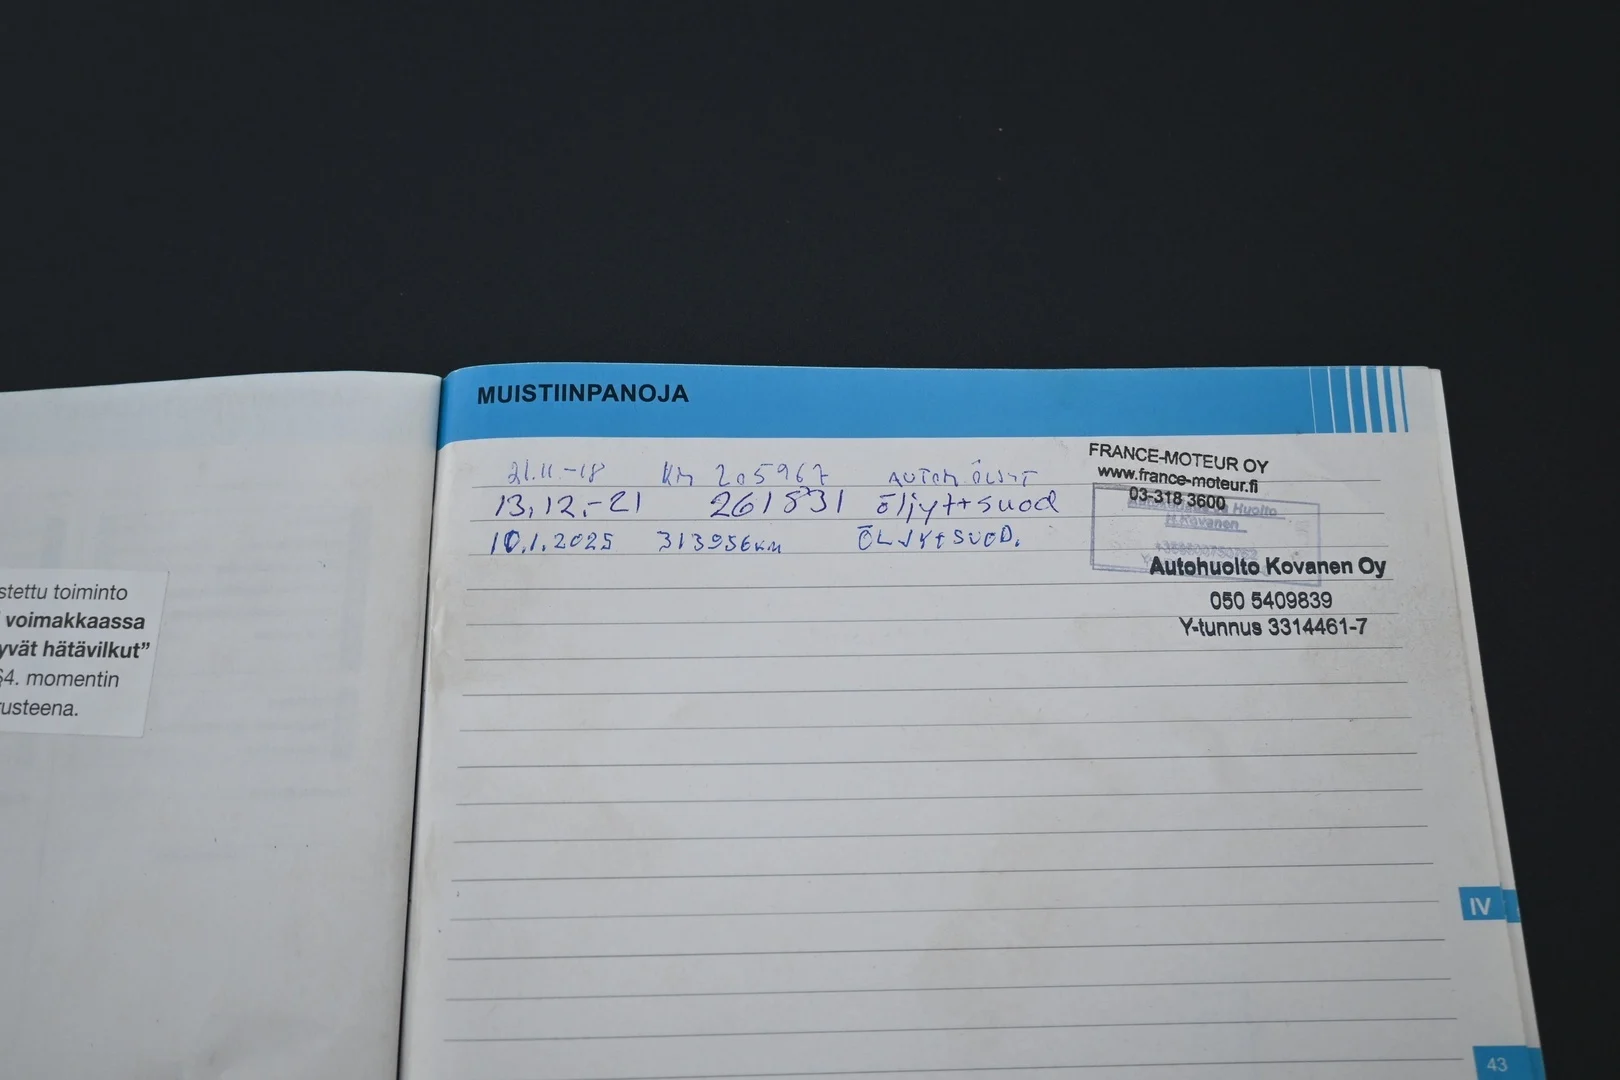 stettu toiminto
voimakkaassa
yvät hätävilkut”
§4. momentin
rusteena.
MUISTIINPANOJA
21.11.-18 KM 205967 AUTOM ÖLJYT
13.12.-21 261831 öljyt+suod
10.1.2025 313956km ÖLJYt+SUOD.
FRANCE-MOTEUR OY
www.france-moteur.fi
03-318 3600
Huolto
Kovanen
Autohuolto Kovanen Oy
050 5409839
Y-tunnus 3314461-7
IV
43